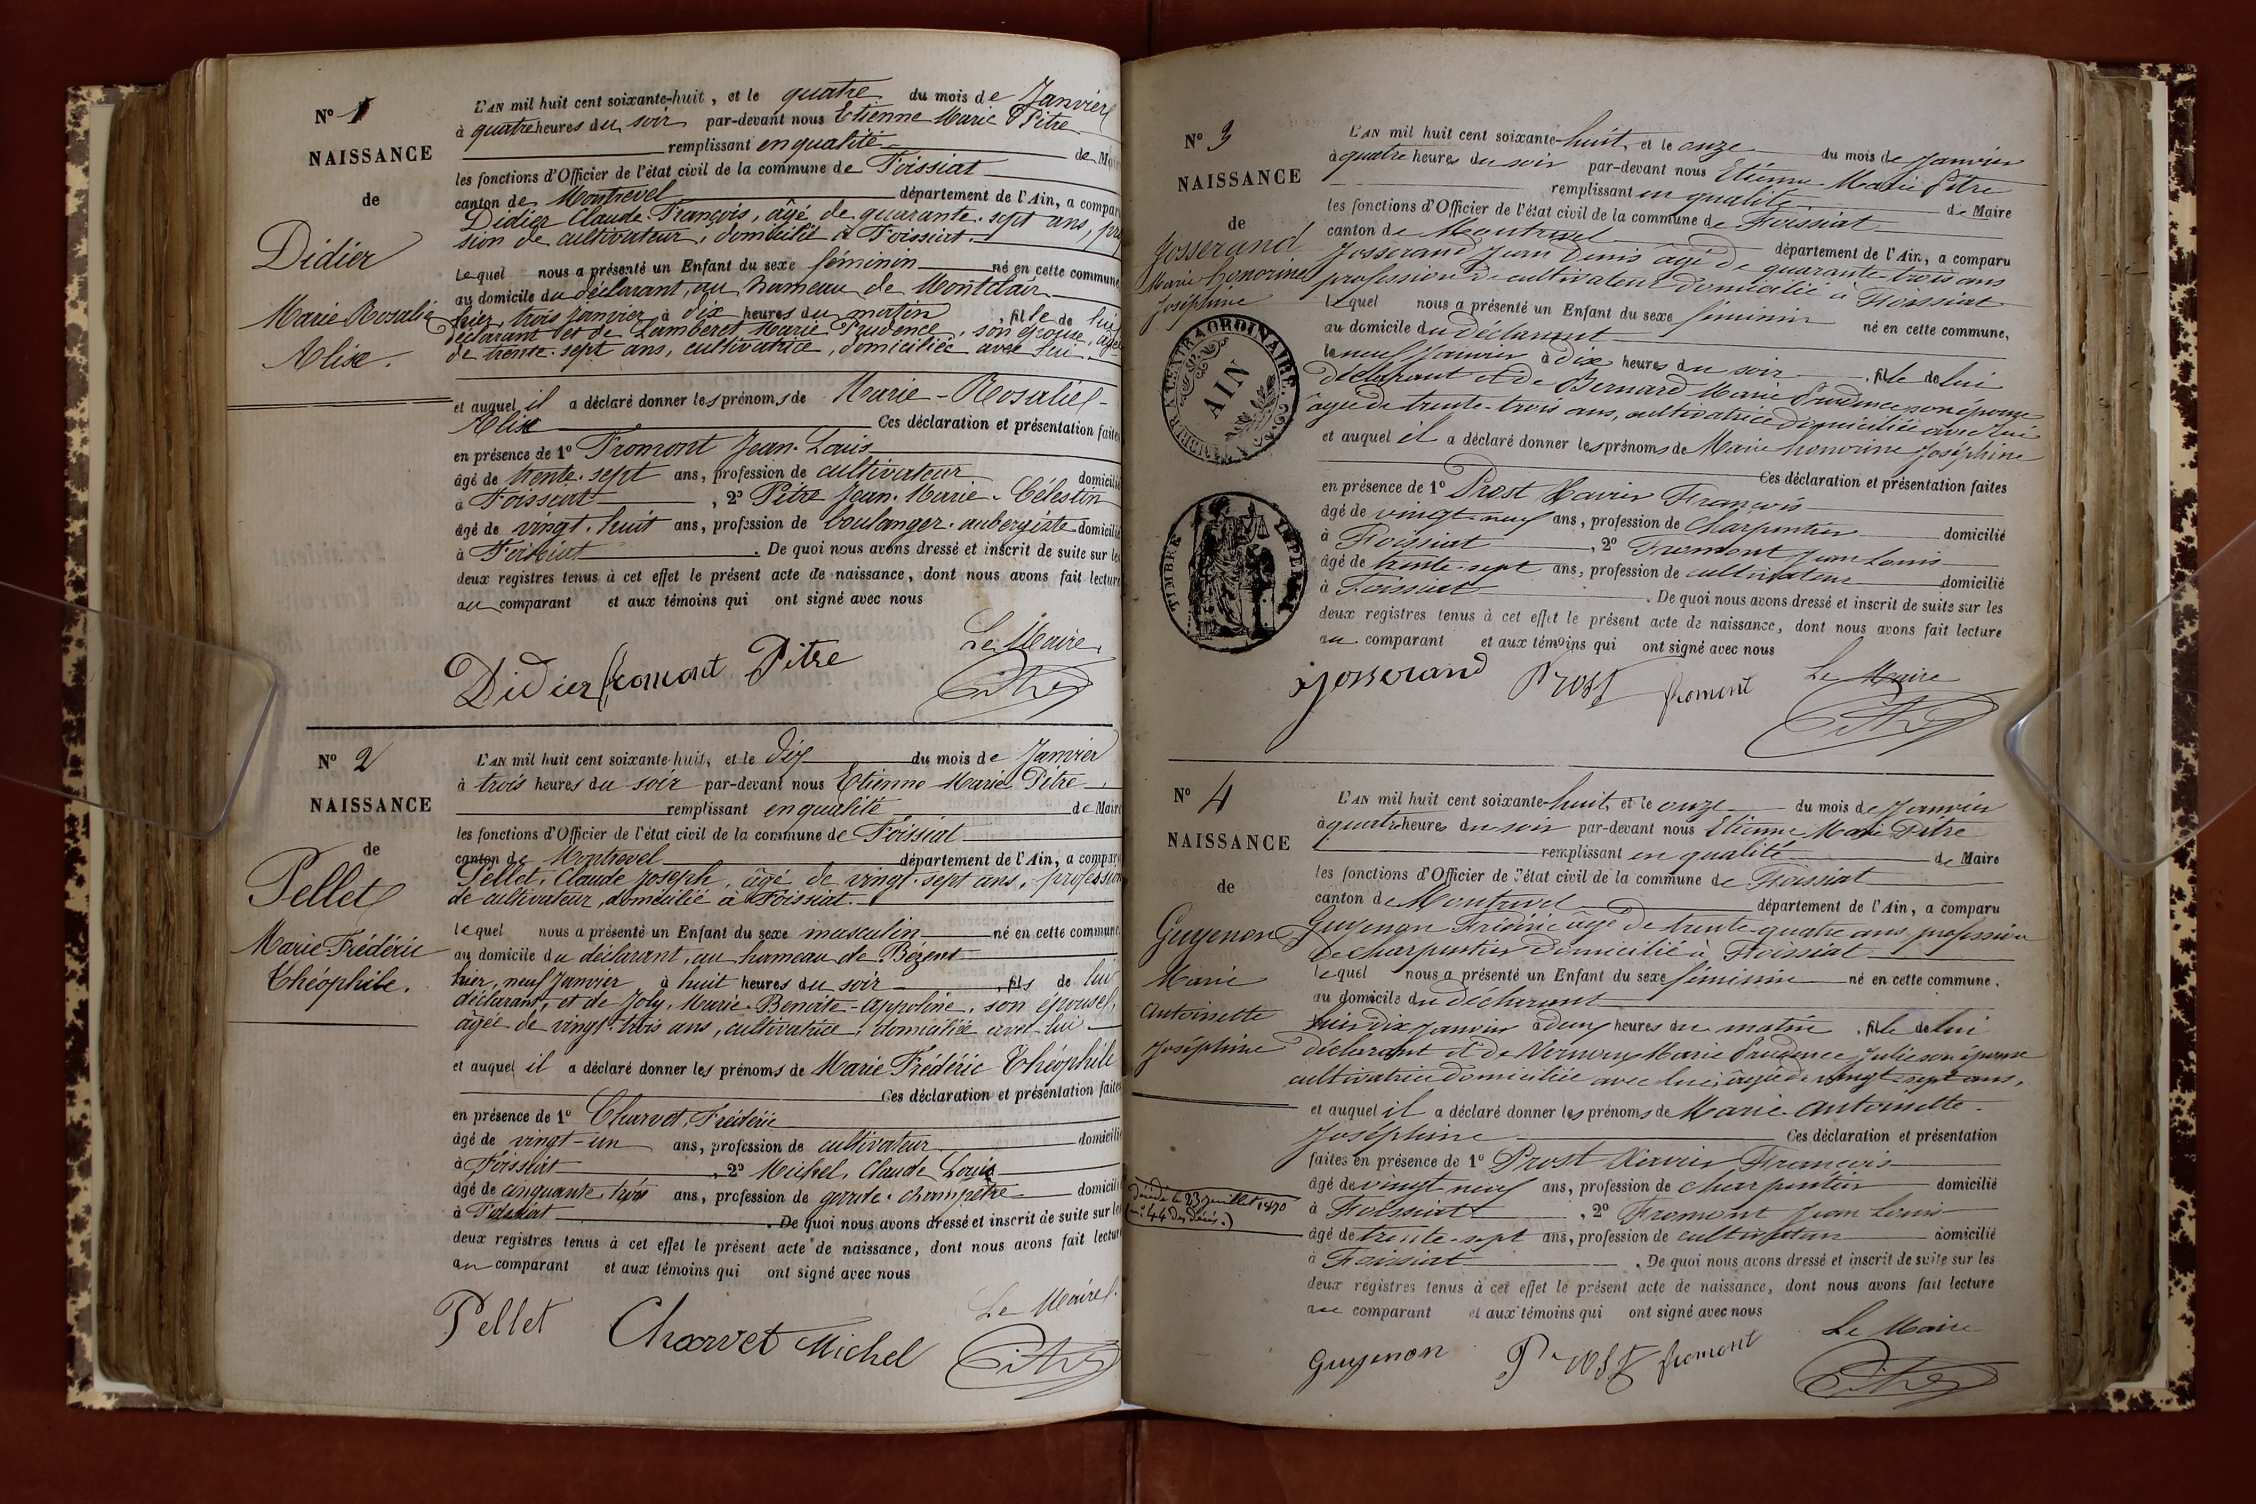 N° 1
NAISSANCE
de
Didier
Marie Rosalie
Alix.
L'AN mil huit cent soixante-huit, et le quatre du mois de Janvier
à quatre heures du soir par-devant nous Etienne Marie Pitre
remplissant en qualité de Maire
les fonctions d'Officier de l'état civil de la commune de Foissiat
canton de Montrevel département de l'Ain, a comparu
Didier Claude François, âgé de quarante-sept ans, profes
sion de cultivateur, domicilié à Foissiat.
lequel nous a présenté un Enfant du sexe féminin né en cette commune
au domicile du déclarant, au hameau de Montclair
hier, trois janvier à dix heures du matin, fille de lui
déclarant et de Lamberet Marie Prudence, son épouse, âgée
de trente-sept ans, cultivatrice, domiciliée avec lui.
et auquel il a déclaré donner les prénoms de Marie-Rosalie-
Alix Ces déclaration et présentation faites
en présence de 1° Fromont Jean-Louis
âgé de trente-sept ans, profession de cultivateur domicilié
à Foissiat, 2° Pitre Jean-Marie-Célestin
âgé de vingt-huit ans, profession de boulanger-aubergiste domicilié
à Foissiat. De quoi nous avons dressé et inscrit de suite sur les
deux registres tenus à cet effet le présent acte de naissance, dont nous avons fait lecture
au comparant et aux témoins qui ont signé avec nous
Le Maire
Didier fromont Pitre Pitre
N° 2
NAISSANCE
de
Pellet
Marie Frédéric
Théophile.
L'AN mil huit cent soixante-huit, et le dix du mois de Janvier
à trois heures du soir par-devant nous Etienne Marie Pitre
remplissant en qualité de Maire
les fonctions d'Officier de l'état civil de la commune de Foissiat
canton de Montrevel département de l'Ain, a comparu
Pellet, Claude Joseph, âgé de vingt-sept ans, profession
de cultivateur, domicilié à Foissiat.
lequel nous a présenté un Enfant du sexe masculin né en cette commune
au domicile du déclarant, au hameau de Bézent
hier, neuf Janvier à huit heures du soir, fils de lui
déclarant, et de Joly, Marie-Benoite-Appoline, son épouse,
âgée de vingt-trois ans, cultivatrice, domiciliée avec lui.
et auquel il a déclaré donner les prénoms de Marie Frédéric Théophile
Ces déclaration et présentation faites
en présence de 1° Charvet, Frédéric
âgé de vingt-un ans, profession de cultivateur domicilié
à Foissiat, 2° Michel, Claude Louis
âgé de cinquante-trois ans, profession de garde-champêtre domicilié
à Foissiat. De quoi nous avons dressé et inscrit de suite sur les
deux registres tenus à cet effet le présent acte de naissance, dont nous avons fait lecture
au comparant et aux témoins qui ont signé avec nous
Le Maire.
Pellet Charvet Michel Pitre
N° 3
NAISSANCE
de
Josserand
Marie honorine
Joséphine
AIN
TIMBRE IMPERIAL
L'AN mil huit cent soixante-huit, et le onze du mois de Janvier
à quatre heures du soir par-devant nous Etienne Marie Pitre
remplissant en qualité de Maire
les fonctions d'Officier de l'état civil de la commune de Foissiat
canton de Montrevel département de l'Ain, a comparu
Josserand Jean Denis âgé de quarante-trois ans
profession de cultivateur domicilié à Foissiat
lequel nous a présenté un Enfant du sexe féminin né en cette commune,
au domicile du déclarant
le neuf Janvier à dix heures du soir, fille de lui
déclarant et de Bernard Marie Prudence son épouse
âgée de trente-trois ans, cultivatrice domiciliée avec lui
et auquel il a déclaré donner les prénoms de Marie honorine Joséphine
Ces déclaration et présentation faites
en présence de 1° Prost Xavier François
âgé de vingt-neuf ans, profession de charpentier domicilié
à Foissiat, 2° Fromont Jean Louis
âgé de trente-sept ans, profession de cultivateur domicilié
à Foissiat. De quoi nous avons dressé et inscrit de suite sur les
deux registres tenus à cet effet le présent acte de naissance, dont nous avons fait lecture
au comparant et aux témoins qui ont signé avec nous
Le Maire
Josserand Prost fromont Pitre
N° 4
NAISSANCE
de
Guyenon
Marie
Antoinette
Joséphine
Décédée le 23 juillet 1870
(n° 44 des Décès.)
L'AN mil huit cent soixante-huit, et le onze du mois de Janvier
à quatre heures du soir par-devant nous Etienne Marie Pitre
remplissant en qualité de Maire
les fonctions d'Officier de l'état civil de la commune de Foissiat
canton de Montrevel département de l'Ain, a comparu
Guyenon Frédéric âgé de trente-quatre ans profession
de charpentier domicilié à Foissiat
lequel nous a présenté un Enfant du sexe féminin né en cette commune,
au domicile du déclarant
hier dix Janvier à deux heures du matin, fille de lui
déclarant et de Vernoux Marie Prudence Julie son épouse
cultivatrice domiciliée avec lui, âgée de vingt-sept ans,
et auquel il a déclaré donner les prénoms de Marie-Antoinette-
Joséphine Ces déclaration et présentation
faites en présence de 1° Prost Xavier François
âgé de vingt neuf ans, profession de charpentier domicilié
à Foissiat, 2° Fromont Jean Louis
âgé de trente-sept ans, profession de cultivateur domicilié
à Foissiat. De quoi nous avons dressé et inscrit de suite sur les
deux registres tenus à cet effet le présent acte de naissance, dont nous avons fait lecture
au comparant et aux témoins qui ont signé avec nous
Le Maire
Guyenon Prost fromont Pitre